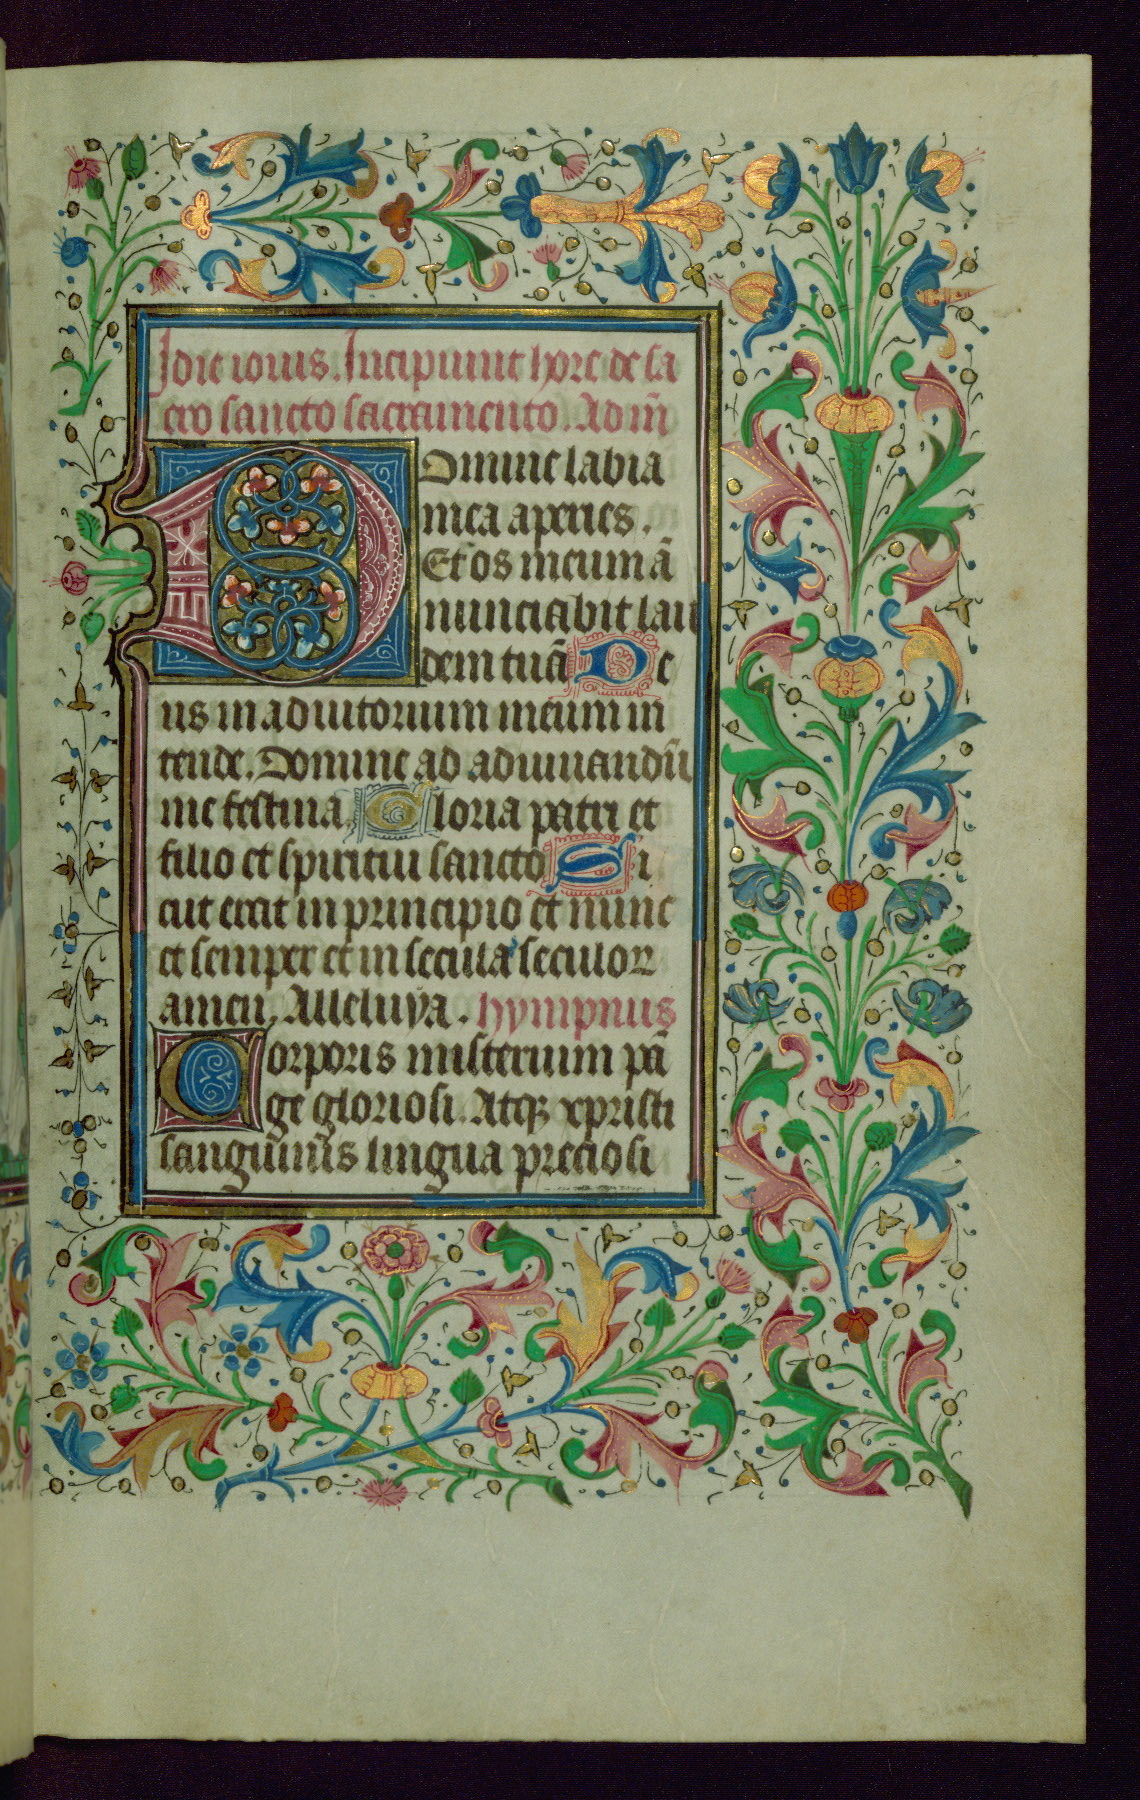 Idie iouis. Incipiunt hore de sa
cro sancto sacramento. Ad m̄
Domine labia
mea aperies.
Et os meum ā
nunciabit lau
dem tuā De
us in adiutorium meum in
tende. Domine ad adiuuandū
me festina. Gloria patri et
filio et spiritui sancto Si
cut erat in principio et nunc
et semper et in secula seculoꝝ
amen. Alleluya. hympnus
Corporis misterium pā
ge gloriosi. Atqꝫ xpristi
sanguinis lingua preciosi